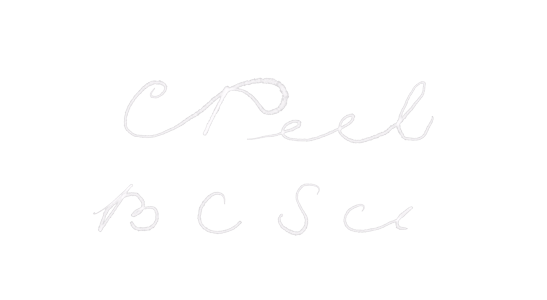 C Peel
B C Sci